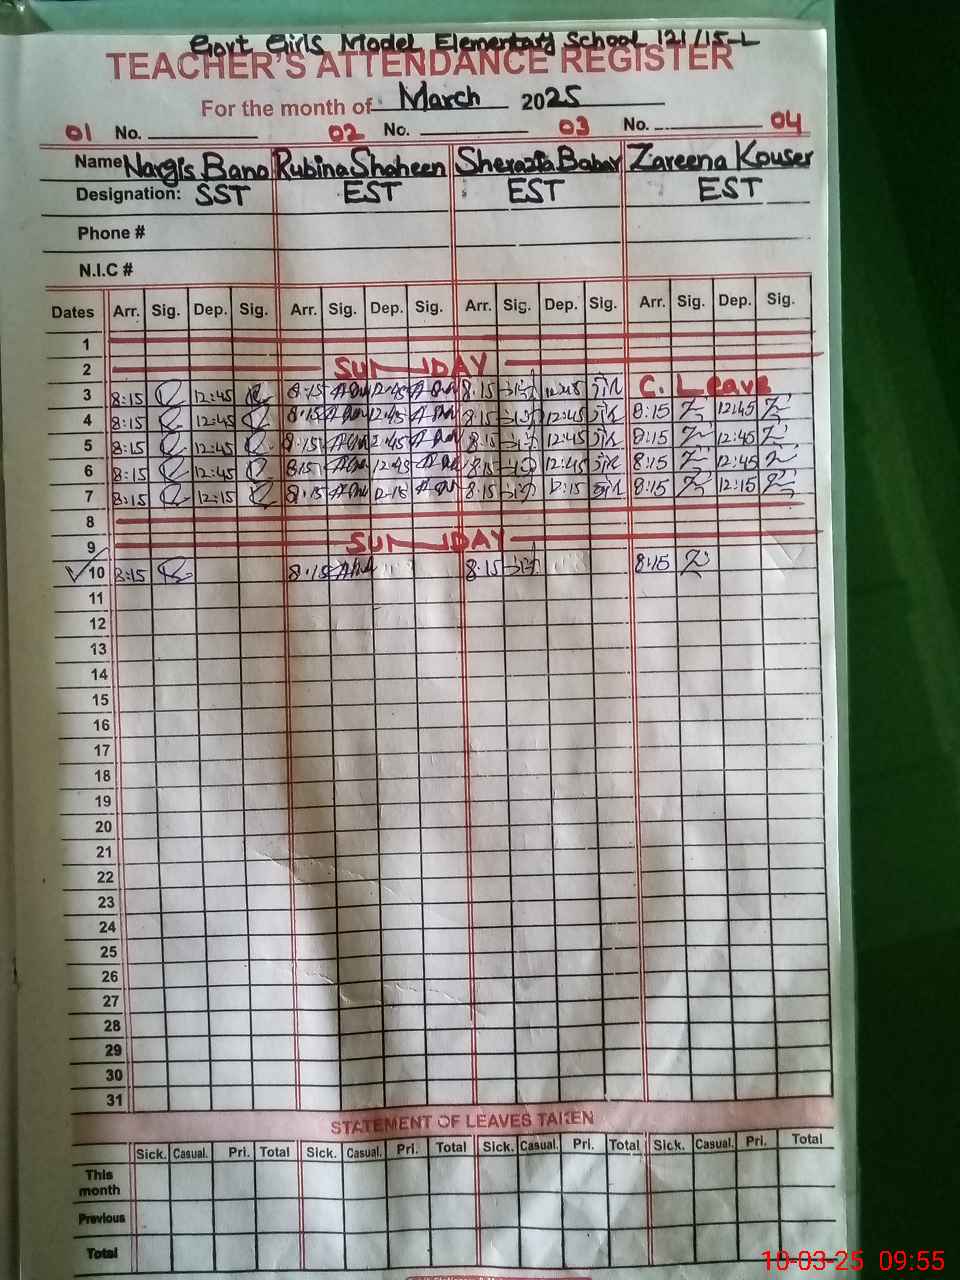 Govt Girls Model Elementary School 121/15-L
TEACHER'S ATTENDANCE REGISTER
For the month of March 2025
01 No. 02 No. 03 No. 04
Name Nargis Bano Rubina Shaheen Sherazia Babar Zareena Kouser
Designation: SST EST EST EST
Phone #
N.I.C #
Dates Arr. Sig. Dep. Sig. Arr. Sig. Dep. Sig. Arr. Sig. Dep. Sig. Arr. Sig. Dep. Sig.
1
2 SUNDAY
3 8:15 12:45 8:15 12:45 8:15 12:45 C. Leave
4 8:15 12:45 8:15 12:45 8:15 12:45 8:15 12:45
5 8:15 12:45 8:15 12:45 8:15 12:45 8:15 12:45
6 8:15 12:45 8:15 12:45 8:15 12:45 8:15 12:45
7 8:15 12:15 8:15 12:15 8:15 12:15 8:15 12:15
8
9 SUNDAY
10 8:15 8:15 8:15 8:15
11
12
13
14
15
16
17
18
19
20
21
22
23
24
25
26
27
28
29
30
31
STATEMENT OF LEAVES TAKEN
Sick. Casual. Pri. Total Sick. Casual. Pri. Total Sick. Casual. Pri. Total Sick. Casual. Pri. Total
This month
Previous
Total
10-03-25 09:55